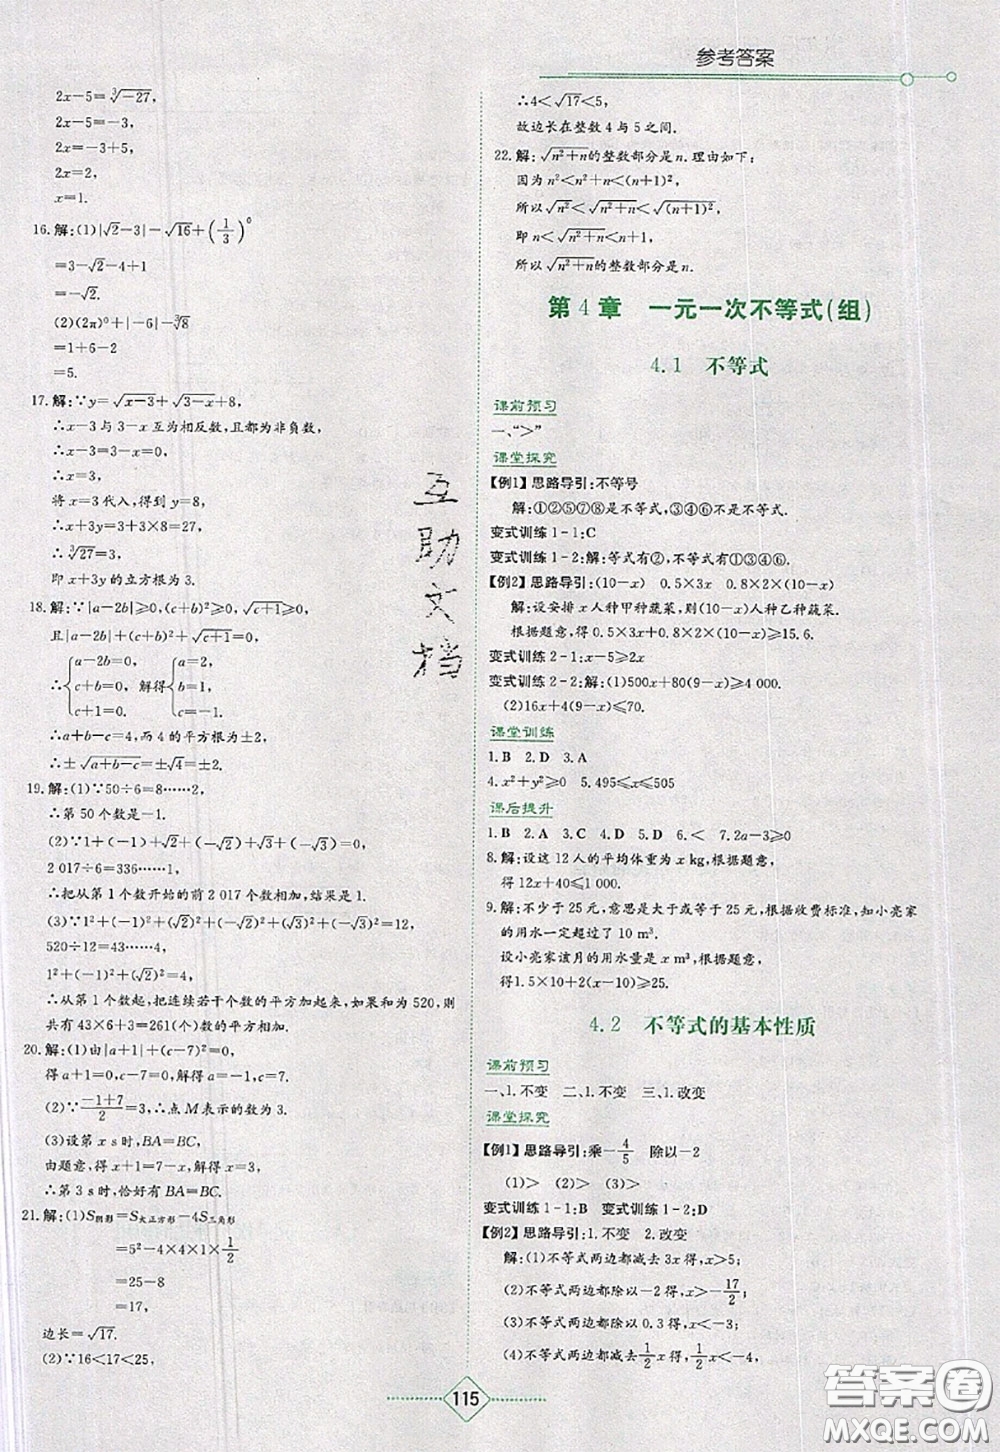 参考答案
2x－5＝∛－27,
2x－5＝－3,
2x＝－3＋5,
2x＝2,
x＝1.
16.解:(1)|√2－3|－√16＋(1/3)⁰
＝3－√2－4＋1
＝－√2.
(2)(2π)⁰＋|－6|－∛8
＝1＋6－2
＝5.
17.解:∵y＝√x－3＋√3－x＋8,
∴x－3与3－x互为相反数,且都为非负数,
∴x－3＝3－x＝0,
∴x＝3,
将x＝3代入,得到y＝8,
∴x＋3y＝3＋3×8＝27,
∴∛27＝3,
即x＋3y的立方根为3.
18.解:∵|a－2b|⩾0,(c＋b)²⩾0,√c＋1⩾0,
且|a－2b|＋(c＋b)²＋√c＋1＝0,
∴{a－2b＝0, c＋b＝0, c＋1＝0. 解得{a＝2, b＝1, c＝－1.
∴a＋b－c＝4,而4的平方根为±2,
∴±√a＋b－c＝±√4＝±2.
19.解:(1)∵50÷6＝8……2,
∴第50个数是－1.
(2)∵1＋(－1)＋√2＋(－√2)＋√3＋(－√3)＝0,
2 017÷6＝336……1,
∴把从第1个数开始的前2 017个数相加,结果是1.
(3)∵1²＋(－1)²＋(√2)²＋(－√2)²＋(√3)²＋(－√3)²＝12,
520÷12＝43……4,
1²＋(－1)²＋(√2)²＝4,
∴从第1个数起,把连续若干个数的平方加起来,如果和为520,则
共有43×6＋3＝261(个)数的平方相加.
20.解:(1)由|a＋1|＋(c－7)²＝0,
得a＋1＝0,c－7＝0,得a＝－1,c＝7.
(2)∵(－1＋7)/2＝3,∴点M表示的数为3.
(3)设第x s时,BA＝BC,
由题意,得x＋1＝7－x,解得x＝3.
∴第3 s时,恰好有BA＝BC.
21.解:(1)S阴影＝S大正方形－4S三角形
＝5²－4×1×4×1/2
＝25－8
＝17,
边长＝√17.
(2)∵16＜17＜25,
∴4＜√17＜5,
故边长在整数4与5之间.
22.解:√n²＋n的整数部分是n.理由如下:
因为n²＜n²＋n＜(n＋1)²,
所以√n²＜√n²＋n＜√(n＋1)²,
即n＜√n²＋n＜n＋1,
所以√n²＋n的整数部分是n.
第4章 一元一次不等式(组)
4.1 不等式
课前预习
一、“＞”
课堂探究
【例1】思路导引:不等号
解:①②⑤⑦⑧是不等式,③④⑥不是不等式.
变式训练1－1:C
变式训练1－2:解:等式有②,不等式有①③④⑥.
【例2】思路导引:(10－x) 0.5×3x 0.8×2×(10－x)
解:设安排x人种甲种蔬菜,则(10－x)人种乙种蔬菜.
根据题意,得0.5×3x＋0.8×2×(10－x)⩾15.6.
变式训练2－1:x－5⩾2x
变式训练2－2:解:(1)500x＋80(9－x)⩾4 000.
(2)16x＋4(9－x)⩽70.
课堂训练
1.B 2.D 3.A
4.x²＋y²⩾0 5.495⩽x⩽505
课后提升
1.B 2.A 3.C 4.D 5.D 6.＜ 7.2a－3⩾0
8.解:设这12人的平均体重为x kg,根据题意,
得12x＋40⩽1 000.
9.解:不少于25元,意思是大于或等于25元,根据收费标准,知小亮家
的用水一定超过了10 m³.
设小亮家该月的用水量为x m³,根据题意,
得1.5×10＋2(x－10)⩾25.
4.2 不等式的基本性质
课前预习
一、1.不变 二、1.不变 三、1.改变
课堂探究
【例1】思路导引:乘－4/5 除以－2
(1)＞ (2)＞ (3)＞
变式训练1－1:B 变式训练1－2:D
【例2】思路导引:1.不变 2.改变
解:(1)不等式两边都减去3x得,x＞5;
(2)不等式两边都除以－2得,x＞－17/2;
(3)不等式两边都除以0.3得,x＜－3;
(4)不等式两边都减去1/2x得,1/2x＜－1,
互助文档
115
答案圈
MXQE.COM